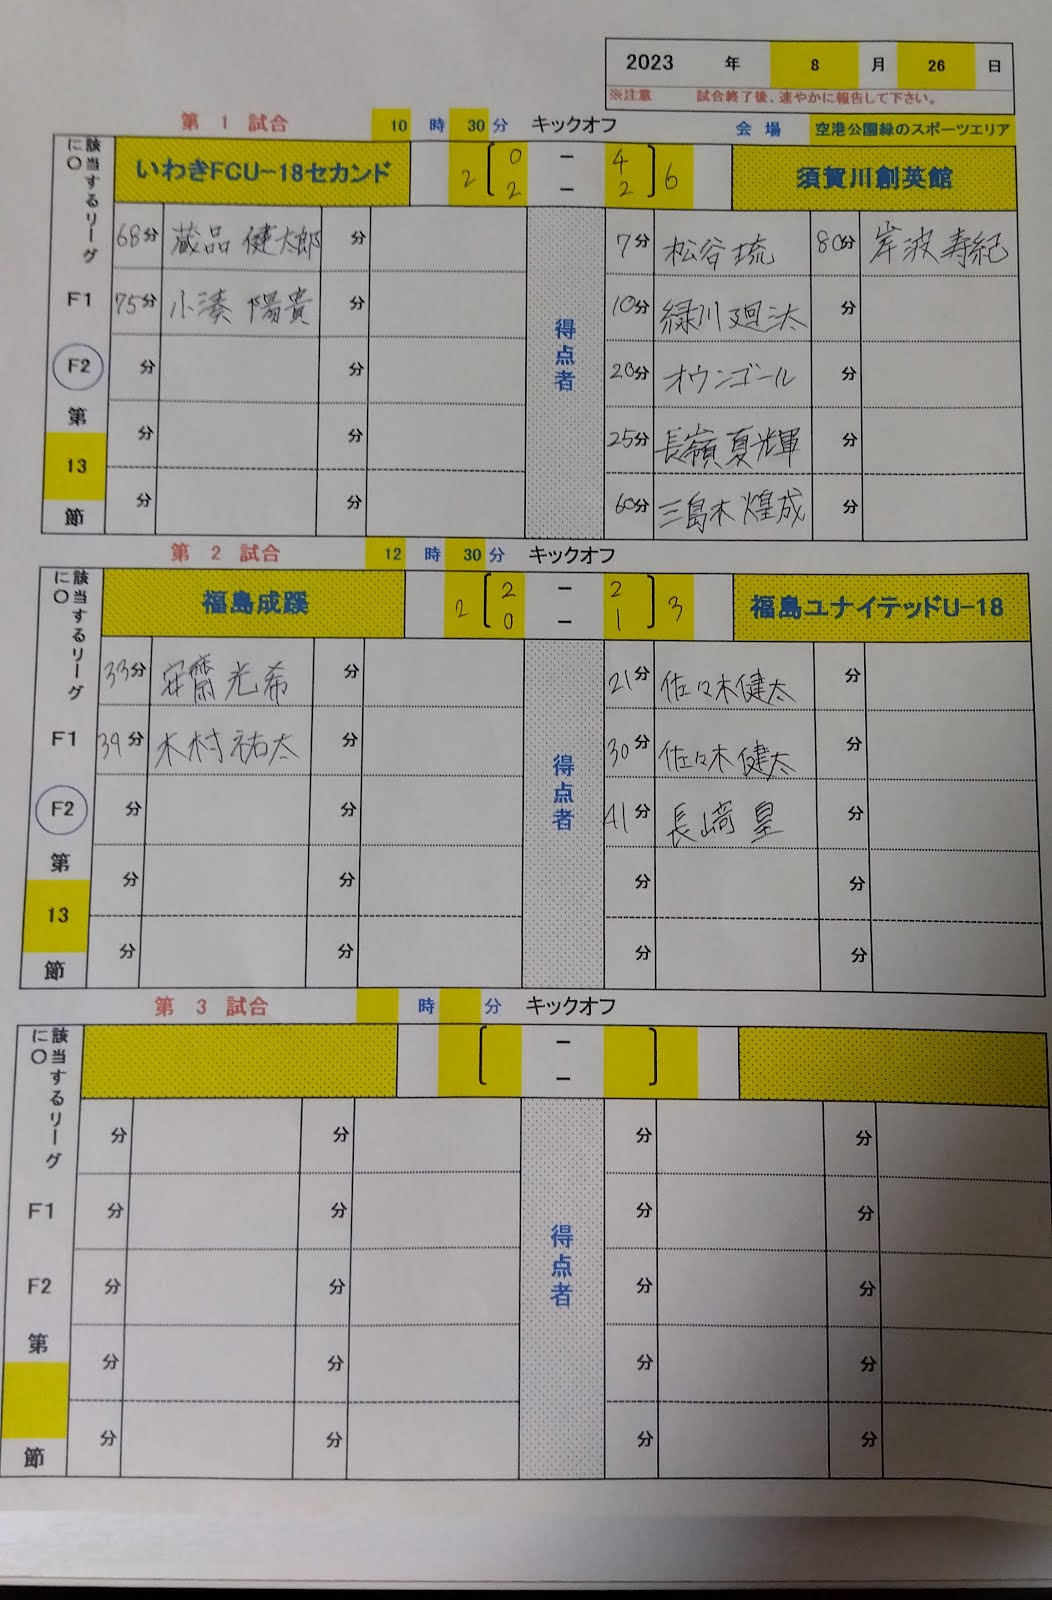 2023 年 8 月 26 日
※注意 試合終了後、速やかに報告して下さい。
第 1 試合 10 時 30 分 キックオフ 会場 空港公園緑のスポーツエリア
該当するリーグに〇
いわきFCU-18セカンド 2 [ 0 - 4 ] 6 須賀川創英館
2 - 2
得点者
68分 蔵品 健太郎 分 7分 松谷 琉 80分 岸波 寿紀
F1 75分 小湊 陽貴 分 10分 緑川 廻汰 分
F2 分 分 20分 オウンゴール 分
第 13 節
分 分 25分 長嶺 夏輝 分
分 分 60分 三島木 煌成 分
第 2 試合 12 時 30 分 キックオフ
該当するリーグに〇
福島成蹊 2 [ 2 - 2 ] 3 福島ユナイテッドU-18
0 - 1
得点者
33分 安齋 光希 分 21分 佐々木健太 分
F1 39分 木村 祐太 分 30分 佐々木健太 分
F2 分 分 41分 長﨑 皇 分
第 13 節
分 分 分 分
分 分 分 分
第 3 試合 時 分 キックオフ
該当するリーグに〇
[ - ]
-
得点者
分 分 分 分
F1 分 分 分 分
F2 分 分 分 分
第 節
分 分 分 分
分 分 分 分